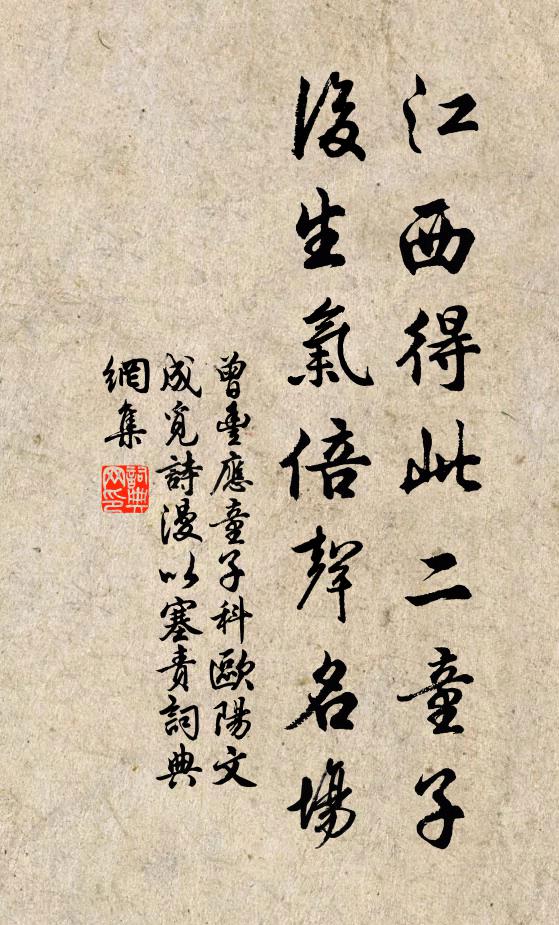 江西得此二童子
後生氣倍聲名場
曾豐應童子科歐陽文
成覓詩漫以塞責詞典
網集
詞典
网印